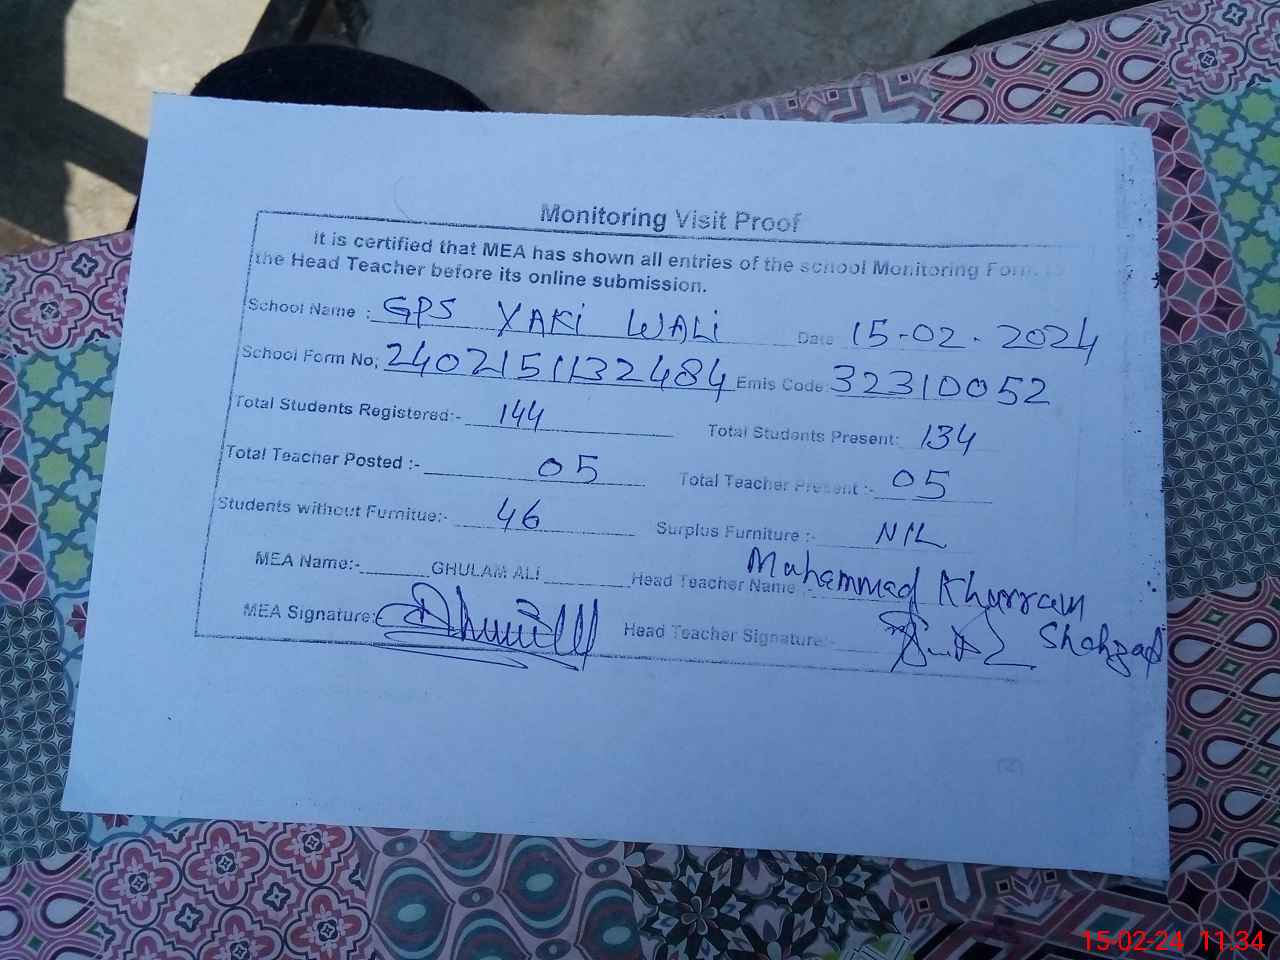 Monitoring Visit Proof
It is certified that MEA has shown all entries of the school Monitoring Form to
the Head Teacher before its online submission.
School Name : GPS YAKI WALI Date 15-02-2024
School Form No; 2402151132484 Emis Code: 32310052
Total Students Registered:- 144 Total Students Present: 134
Total Teacher Posted :- 05 Total Teacher Present :- 05
Students without Furnitue:- 46 Surplus Furniture :- NIL
MEA Name:- GHULAM ALI Head Teacher Name :- Muhammad Khurram Shahzad
MEA Signature: Head Teacher Signature:-
15-02-24 11:34